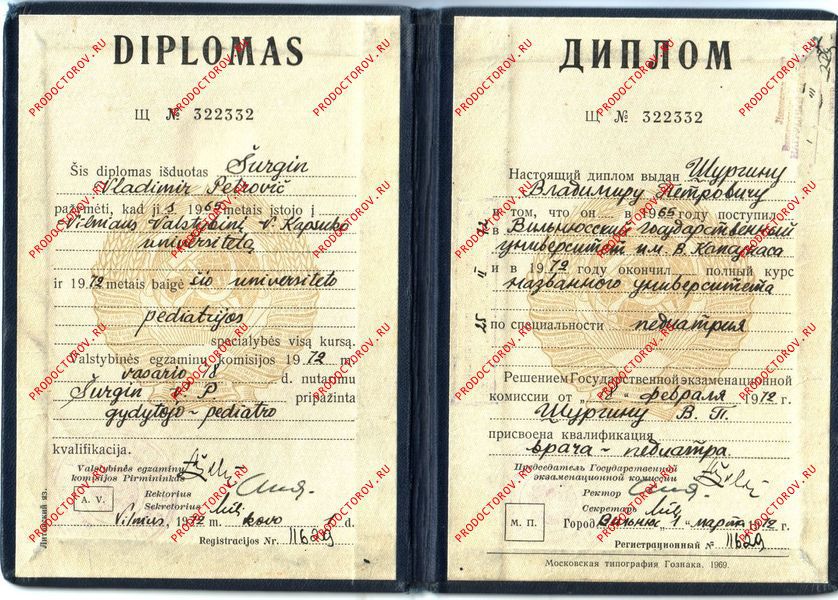 DIPLOMAS
Щ № 322332
Šis diplomas išduotas Šurgin
Vladimir Petrovič
pažymėti, kad jis 1965 metais įstojo į
Vilniaus Valstybinį V. Kapsuko
universitetą
ir 1972 metais baigė šio universiteto
pediatrijos
specialybės visą kursą.
Valstybinės egzaminų komisijos 1972 m.
vasario 18 d. nutarimu
Šurgin V. P pripažinta
gydytojo-pediatro
kvalifikacija.
Valstybinės egzaminų
komisijos Pirmininkas
A. V.
Rektorius
Sekretorius
Vilnius, 1972 m. kovo 1 d.
Registracijos Nr. 11629
Литовский яз.
ДИПЛОМ
Щ № 322332
Настоящий диплом выдан Шургину
Владимиру Петровичу
в том, что он в 1965 году поступил
в Вильнюсский государственный
университет им. В. Капсукаса
и в 1972 году окончил полный курс
названного университета
по специальности педиатрия
Решением Государственной экзаменационной
комиссии от „18" февраля 1972 г.
Шургину В. П.
присвоена квалификация
врача-педиатра.
Председатель Государственной
экзаменационной комиссии
Ректор
Секретарь
М. П.
Город Вильнюс „1" марта 1972 г.
Регистрационный № 11629
Московская типография Гознака. 1969.
PRODOCTOROV.RU